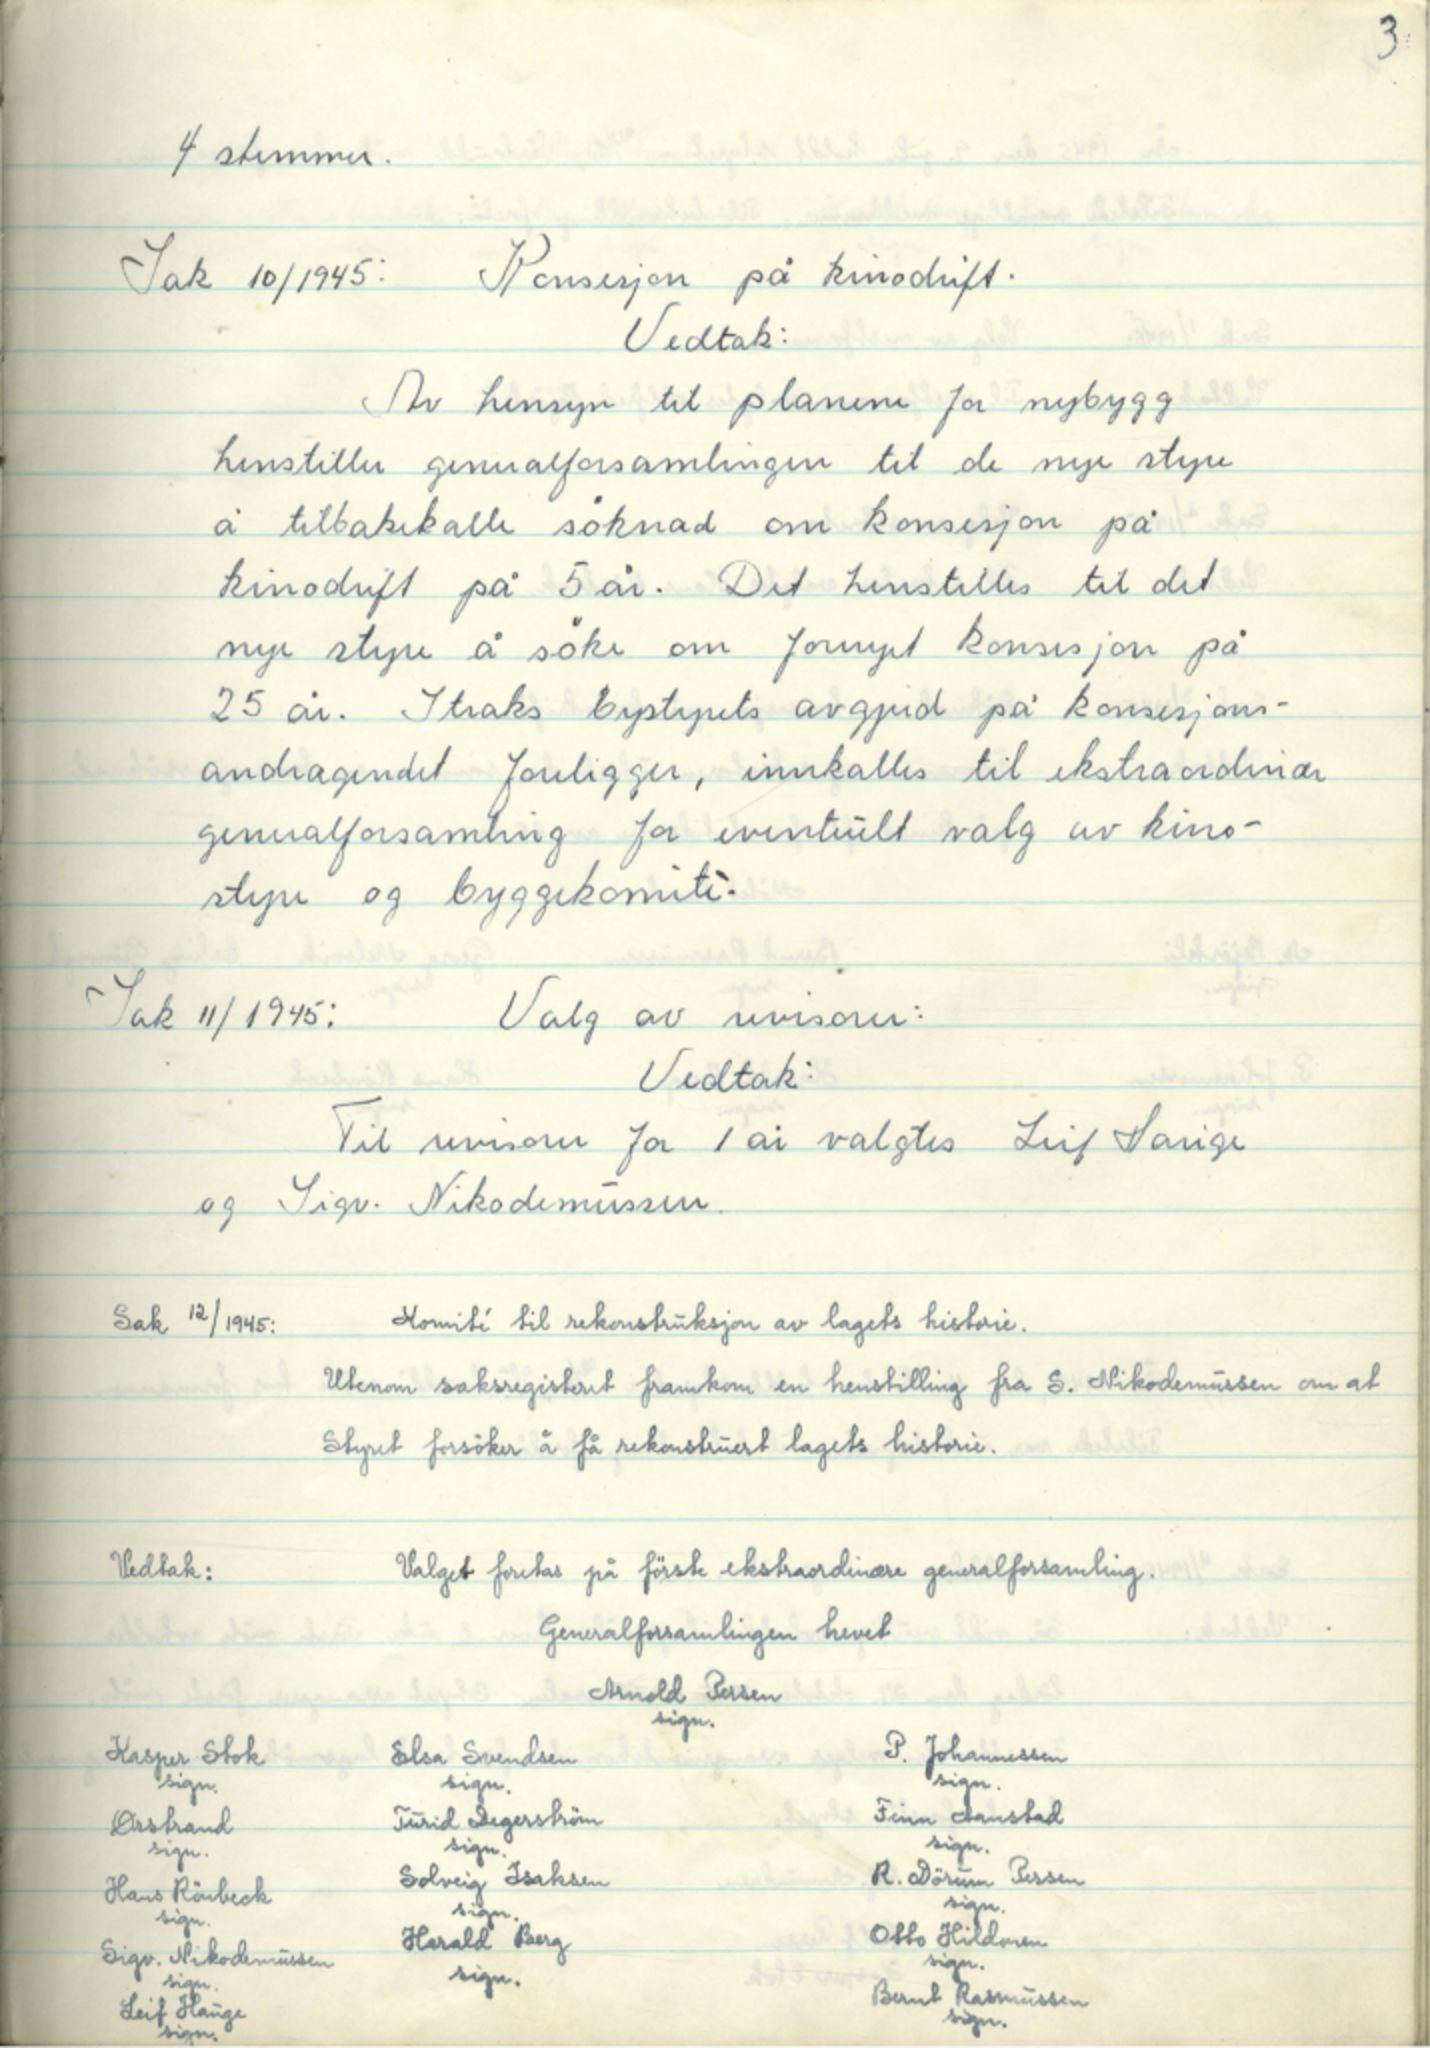 3
4 stemmer.
Sak 10/1945: Konsesjon på kinodrift.
Vedtak:
Av hensyn til planene for nybygg
henstiller generalforsamlingen til de nye styre
å tilbakekalle söknad om konsesjon på
kinodrift på 5 år. Det henstilles til det
nye styre å söke om fornyet konsesjon på
25 år. Straks bystyrets avgjørd på konsesjons-
andragendet foreligger, innkalles til ekstraordinær
generalforsamling for eventuelt valg av kino-
styre og byggekomité.
Sak 11/1945: Valg av revisorer:
Vedtak:
Til revisorer for 1 år valgtes Leif Hauge
og Sigv. Nikodemussen.
Sak 12/1945: Komité til rekonstruksjon av lagets historie.
Utenom saksregisteret framkom en henstilling fra S. Nikodemussen om at
Styret forsöker å få rekonstruert lagets historie.
Vedtak: Valget foretas på förste ekstraordinære generalforsamling.
Generalforsamlingen hevet
Arnold Persen
sign.
Kasper Stok Elsa Svendsen P. Johannessen
sign. sign. sign.
Ørstrand Turid Segerström Finn Aanstad
sign. sign. sign.
Hans Rönbeck Solveig Isaksen R. Dörum Persen
sign. sign. sign.
Sigv. Nikodemussen Harald Berg Otto Hildonen
sign. sign. sign.
Leif Hauge Bernt Rasmussen
sign. sign.